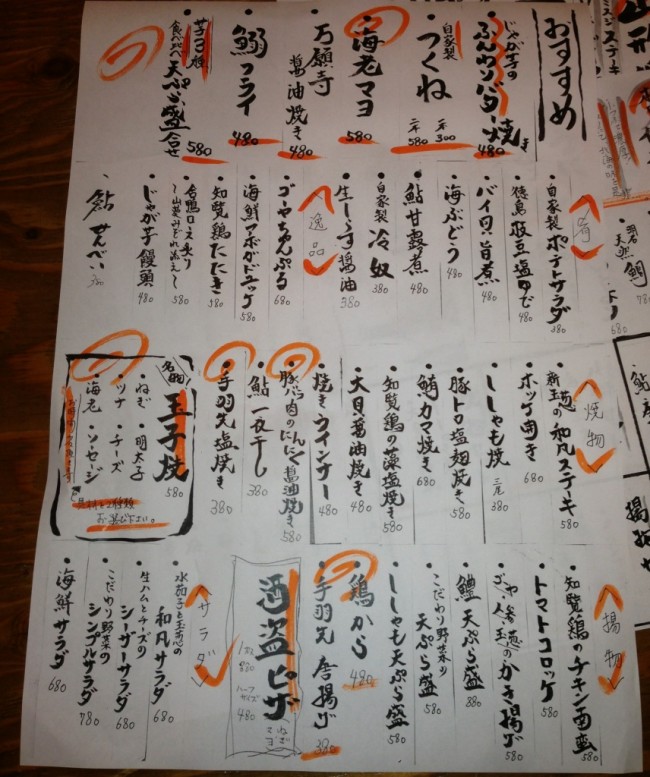 おすすめ
じゃが芋の
ふんわりバター焼き
480
自家製
・つくね
一本 300
二本 580
・海老マヨ
580
・万願寺
醤油焼き
480
・鰯フライ
480
食べ比べ 天ぷら盛合せ
580
〈肴〉
・自家製 ポテトサラダ
380
・徳島 枝豆塩ゆで
480
・バイ貝旨煮
480
・海ぶどう
480
・鮎甘露煮
480
・自家製 冷奴
380
・生しらす醤油
380
〈逸品〉
・ゴーヤちゃんぷる
680
・海鮮アボガドユッケ
580
・知覧鶏たたき
580
・合鴨ロース炙り
580
・じゃが芋饅頭
480
・鮎せんべい
〈焼物〉
・新玉葱の和風ステーキ
580
・ホッケ開き
680
・ししゃも焼
三尾 380
・豚トロ塩麹焼き
580
・鮪カマ焼き
680
・知覧鶏の藻塩焼き
580
・大貝醤油焼き
480
・焼きウインナー
480
・豚バラ肉のにんにく醤油焼き
580
・鮎一夜干し
380
・手羽先塩焼き
380
名物
玉子焼
580
・ねぎ ・明太子
・ツナ ・チーズ
・海老 ・ソーセージ
お選び下さい。
〈揚物〉
・知覧鶏のチキン南蛮
580
・トマトコロッケ
580
かき揚げ
580
・鱧天ぷら盛
880
・こだわり野菜の
天ぷら盛
580
・ししゃも天ぷら盛
580
・鶏から
480
・手羽先唐揚げ
380
酒盗ピザ
ハーフサイズ 480
〈サラダ〉
・水茄子と玉葱の
和風サラダ
680
・生ハムとチーズの
シーザーサラダ
680
・こだわり野菜の
シンプルサラダ
780
・海鮮サラダ
680